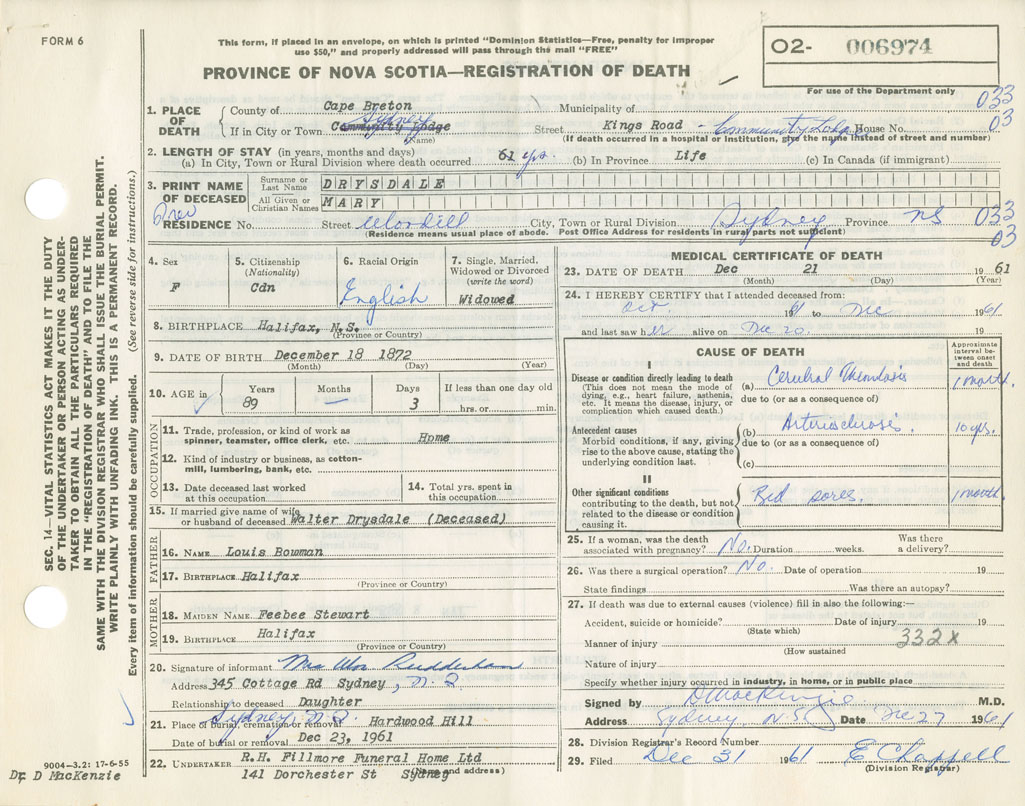 FORM 6
This form, if placed in an envelope, on which is printed "Dominion Statistics—Free, penalty for improper
use $50," and properly addressed will pass through the mail "FREE"
PROVINCE OF NOVA SCOTIA—REGISTRATION OF DEATH
O2- 006974
For use of the Department only
033
03
1. PLACE OF DEATH
County of Cape Breton Municipality of
Sydney
If in City or Town Community Lodge Street Kings Road - Community Lodge House No.
(Name) (If death occurred in a hospital or institution, give the name instead of street and number)
2. LENGTH OF STAY (in years, months and days)
(a) In City, Town or Rural Division where death occurred 61 yrs. (b) In Province Life (c) In Canada (if immigrant)
3. PRINT NAME OF DECEASED
Surname or Last Name DRYSDALE
All Given or Christian Names MARY
RESIDENCE No. Street City, Town or Rural Division Sydney Province NS 033
(Residence means usual place of abode. Post Office Address for residents in rural parts not sufficient) 03
4. Sex F
5. Citizenship (Nationality) Cdn
6. Racial Origin English
7. Single, Married, Widowed or Divorced (write the word) Widowed
8. BIRTHPLACE Halifax, N.S.
(Province or Country)
9. DATE OF BIRTH December 18 1872
(Month) (Day) (Year)
10. AGE in Years 89 Months — Days 3 If less than one day old hrs. or min.
OCCUPATION
11. Trade, profession, or kind of work as
spinner, teamster, office clerk, etc. Hpme
12. Kind of industry or business, as cotton-
mill, lumbering, bank, etc.
13. Date deceased last worked
at this occupation
14. Total yrs. spent in
this occupation
15. If married give name of wife
or husband of deceased Walter Drysdale (Deceased)
FATHER
16. NAME Louis Bowman
17. BIRTHPLACE Halifax
(Province or Country)
MOTHER
18. MAIDEN NAME Feebee Stewart
19. BIRTHPLACE Halifax
(Province or Country)
20. Signature of informant Mrs Wm Rudderham
Address 345 Cottage Rd Sydney, N.S.
Relationship to deceased Daughter
Sydney N.S.
21. Place of burial, cremation or removal Hardwood Hill
Date of burial or removal Dec 23, 1961
22. UNDERTAKER R.H. Fillmore Funeral Home Ltd
141 Dorchester St Sydney
(Name and address)
MEDICAL CERTIFICATE OF DEATH
23. DATE OF DEATH Dec 21 1961
(Month) (Day) (Year)
24. I HEREBY CERTIFY that I attended deceased from:
Oct. 1961 to Dec 1961
and last saw her alive on Dec 20 19
CAUSE OF DEATH
Approximate interval between onset and death
I
Disease or condition directly leading to death
(This does not mean the mode of
dying, e.g., heart failure, asthenia,
etc. It means the disease, injury, or
complication which caused death.)
(a) Cerebral Thrombosis 1 month.
due to (or as a consequence of)
Antecedent causes
Morbid conditions, if any, giving
rise to the above cause, stating the
underlying condition last.
(b) Arteriosclerosis. 10 yrs.
due to (or as a consequence of)
(c)
II
Other significant conditions
contributing to the death, but not
related to the disease or condition
causing it.
Bed sores. 1 month
25. If a woman, was the death
associated with pregnancy? No. Duration weeks. Was there
a delivery?
26. Was there a surgical operation? No. Date of operation 19
State findings Was there an autopsy?
27. If death was due to external causes (violence) fill in also the following:—
Accident, suicide or homicide? Date of injury 19
(State which)
332X
Manner of injury
(How sustained
Nature of injury
Specify whether injury occurred in industry, in home, or in public place
Signed by D MacKenzie M.D.
Address Sydney N.S. Date Dec 27 1961
28. Division Registrar's Record Number
29. Filed Dec 31 1961 E Chappell
(Division Registrar)
SEC. 14—VITAL STATISTICS ACT MAKES IT THE DUTY
OF THE UNDERTAKER OR PERSON ACTING AS UNDER-
TAKER TO OBTAIN ALL THE PARTICULARS REQUIRED
IN THE "REGISTRATION OF DEATH" AND TO FILE THE
SAME WITH THE DIVISION REGISTRAR WHO SHALL ISSUE THE BURIAL PERMIT.
WRITE PLAINLY WITH UNFADING INK. THIS IS A PERMANENT RECORD.
Every item of information should be carefully supplied. (See reverse side for instructions.)
9004-3.2: 17-6-55
Dr. D MacKenzie